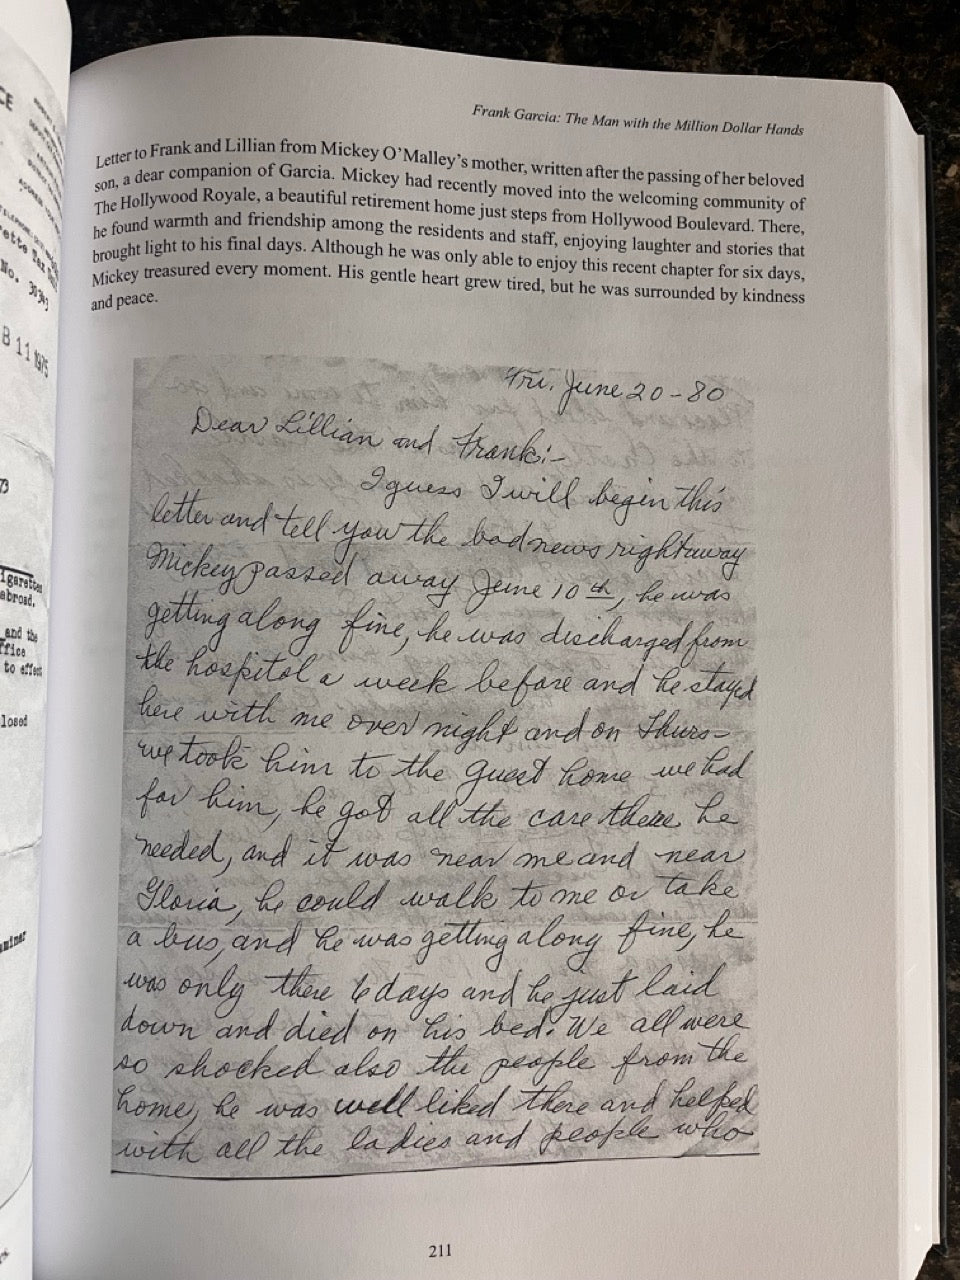 CE
No. 30343
B 11 1975
73
igarettes
abroad.
and the
ffice
to effect
losed
aminar
Frank Garcia: The Man with the Million Dollar Hands
Letter to Frank and Lillian from Mickey O'Malley's mother, written after the passing of her beloved
son, a dear companion of Garcia. Mickey had recently moved into the welcoming community of
The Hollywood Royale, a beautiful retirement home just steps from Hollywood Boulevard. There,
he found warmth and friendship among the residents and staff, enjoying laughter and stories that
brought light to his final days. Although he was only able to enjoy this recent chapter for six days,
Mickey treasured every moment. His gentle heart grew tired, but he was surrounded by kindness
and peace.
Fri. June 20-80
Dear Lillian and Frank:-
I guess I will begin this
letter and tell you the bad news right away
Mickey passed away June 10th, he was
getting along fine, he was discharged from
the hospital a week before and he stayed
here with me over night and on Thurs-
we took him to the guest home we had
for him, he got all the care there he
needed, and it was near me and near
Gloria, he could walk to me or take
a bus, and he was getting along fine, he
was only there 6 days and he just laid
down and died on his bed. We all were
so shocked also the people from the
home, he was well liked there and helped
with all the ladies and people who
211